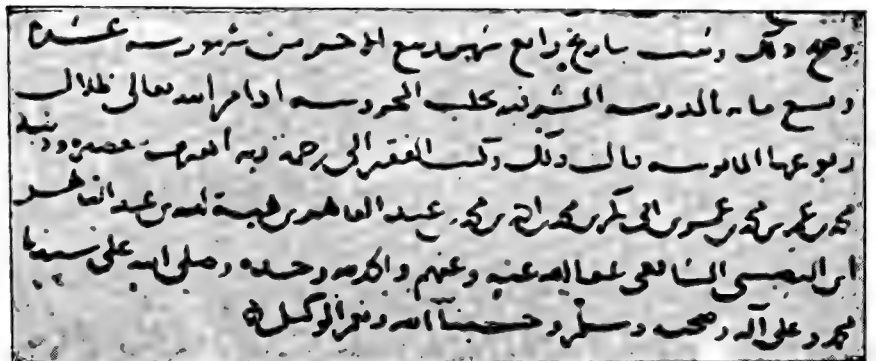 وصح ذلك وثبت بتاريخ رابع شهر ربيع الاخر من شهور سنة عشرة
وتسع مايه بالمدرسه الشرفيه بحلب المحروسه ادام الله تعالى ظلال
ربوعها المانوسه قال ذلك وكتبه الفقير الى رحمة ربه وذنبه
محمد بن عمر بن محمد بن عمر بن ابي بكر بن محمد بن احمد بن محمد بن عبد القاهر بن هبة الله بن عبد القاهر
ابن النصيبي الشافعي عفا الله عنه وعنهم والحمد لله وحده وصلى الله على سيدنا
محمد وعلى آله وصحبه وسلم وحسبنا الله ونعم الوكيل